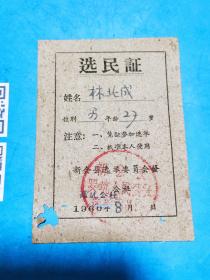 选民証
姓名 林北成
性别 男 年龄 27 岁
注意：一、凭証参加选举
二、祗限本人使用
新会县选举委员会發
公社
1960年8月 日